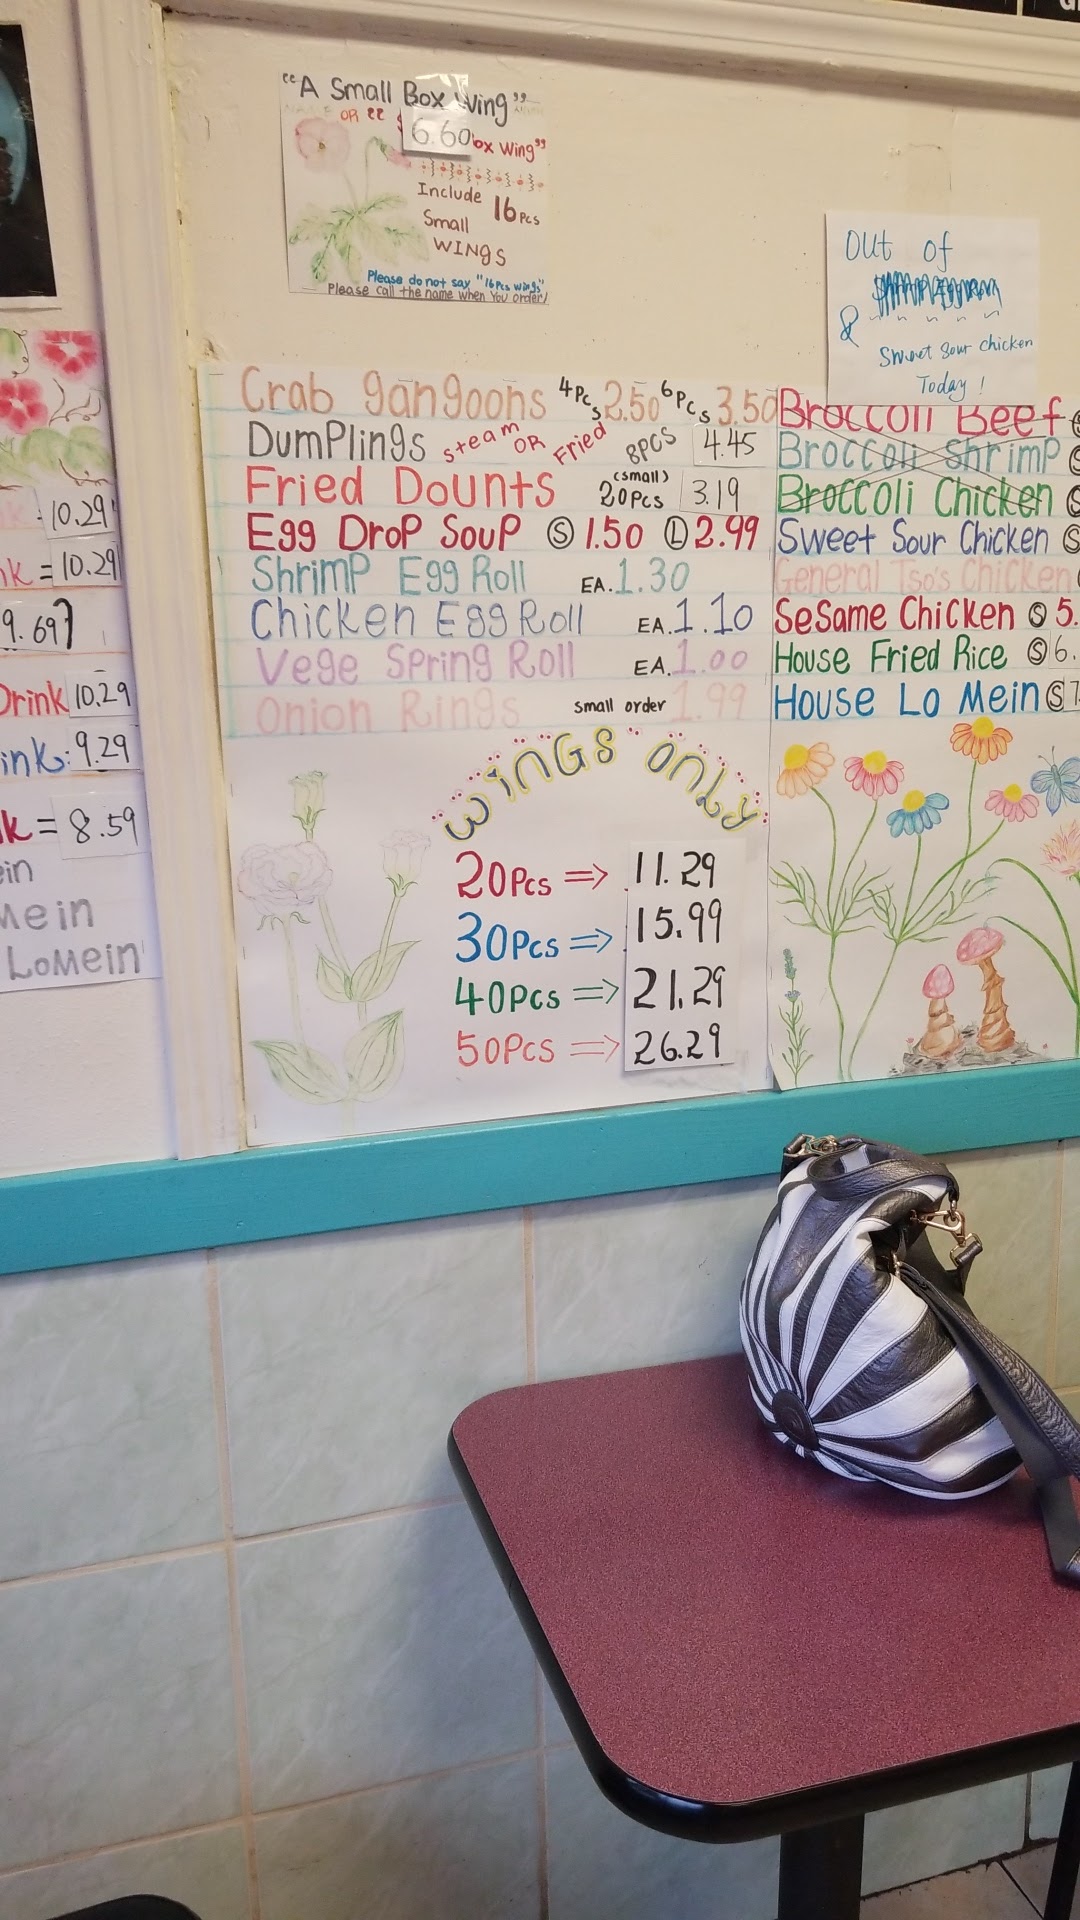 "A Small Box Wing"
OR "
6.60 Box Wing"
Include 16 Pcs
Small
WINGS
Please do not say "16 Pcs wings"
Please call the name when You order!
OUT of
& Sweet Sour chicken
Today!
Crab gangoons 4Pcs 2.50 6Pcs 3.50
DumPlings steam OR Fried 8PCS 4.45
Fried Dounts (small) 20Pcs 3.19
Egg Drop Soup Ⓢ 1.50 Ⓛ 2.99
ShrimP Egg Roll EA. 1.30
Chicken Egg Roll EA. 1.10
Vege Spring Roll EA. 1.00
Onion Rings small order 1.99
Broccoli Beef
Broccoli ShrimP
Broccoli Chicken
Sweet Sour Chicken Ⓢ
General Tso's Chicken
SeSame Chicken Ⓢ 5.
House Fried Rice Ⓢ 6.
House Lo Mein Ⓢ 7.
WINGS ONLY
20Pcs => 11.29
30Pcs => 15.99
40Pcs => 21.29
50Pcs => 26.29
10.29
nk = 10.29
9.69
Drink 10.29
ink: 9.29
k = 8.59
ein
Mein
LoMein